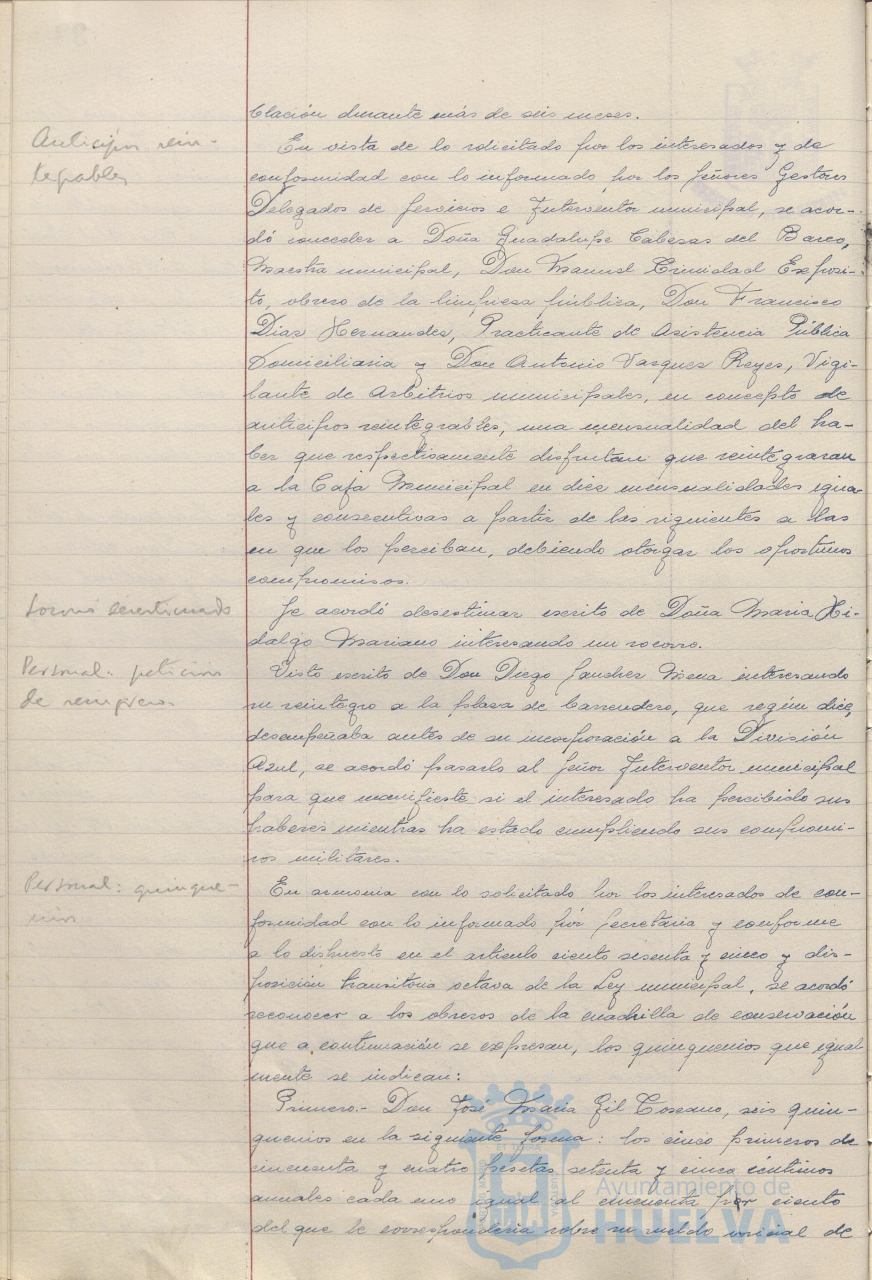 blación durante más de seis meses.
Anticipos rein-
tegrables
En vista de lo solicitado por los interesados y de
conformidad con lo informado por los señores Gestores
Delegados de Servicios e Interventor municipal, se acor-
dó conceder a Doña Guadalupe Cabesas del Barco,
Maestra municipal, Don Manuel Trinidad Exposi-
to, obrero de la limpiesa pública, Don Francisco
Dias Hernandes, Practicante de Asistencia Pública
Domiciliaria y Don Antonio Vasques Reyes, Vigi-
lante de Arbitrios municipales, en concepto de
anticipos reintegrables, una mensualidad del ha-
ber que respectivamente disfrutan que reintegraran
a la Caja Municipal en diez mensualidades igua-
les y consecutivas a partir de las siguientes a las
en que los perciban, debiendo otorgar los oportunos
compromisos.
Socorro desestimado
Se acordó desestimar escrito de Doña Maria Hi-
dalgo Mariano interesando un socorro.
Personal: petición
de reingreso.
Visto escrito de Don Diego Sanches Mena interesando
su reintegro a la plasa de barrendero, que según dice,
desempeñaba antes de su incorporación a la División
Azul, se acordó pasarlo al Señor Interventor municipal
para que manifieste si el interesado ha percibido sus
haberes mientras ha estado cumpliendo sus compromi-
sos militares.
Personal: quinque-
nios
En armonia con lo solicitado por los interesados de con-
formidad con lo informado por Secretaria y conforme
a lo dispuesto en el articulo ciento sesenta y cinco y dis-
posición transitoria octava de la Ley municipal, se acordó
reconocer a los obreros de la cuadrilla de conservación
que a continuación se expresan, los quinquenios que igual
mente se indican:
Primero.- Don José Maria Gil Toscano, seis quin-
quenios en la siguiente forma: los cinco primeros de
cincuenta y cuatro pesetas setenta y cinco céntimos
anuales cada uno igual al cincuenta por ciento
del que le corresponderia sobre su sueldo inicial de
Ayuntamiento de
HUELVA